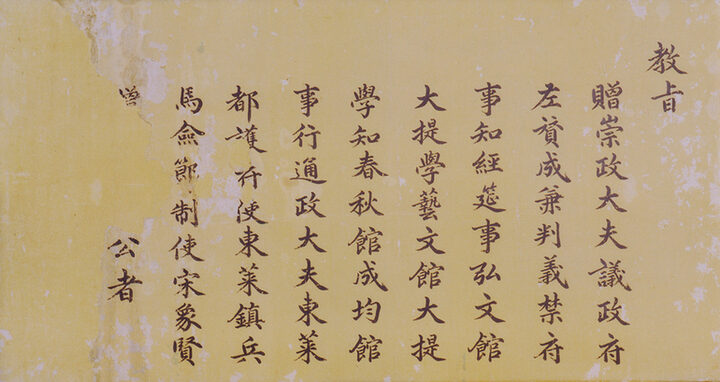 教旨
贈崇政大夫議政府
左賛成兼判義禁府
事知經筵事弘文館
大提學藝文館大提
學知春秋館成均館
事行通政大夫東萊
都護府使東萊鎮兵
馬僉節制使宋象賢
贈 公者